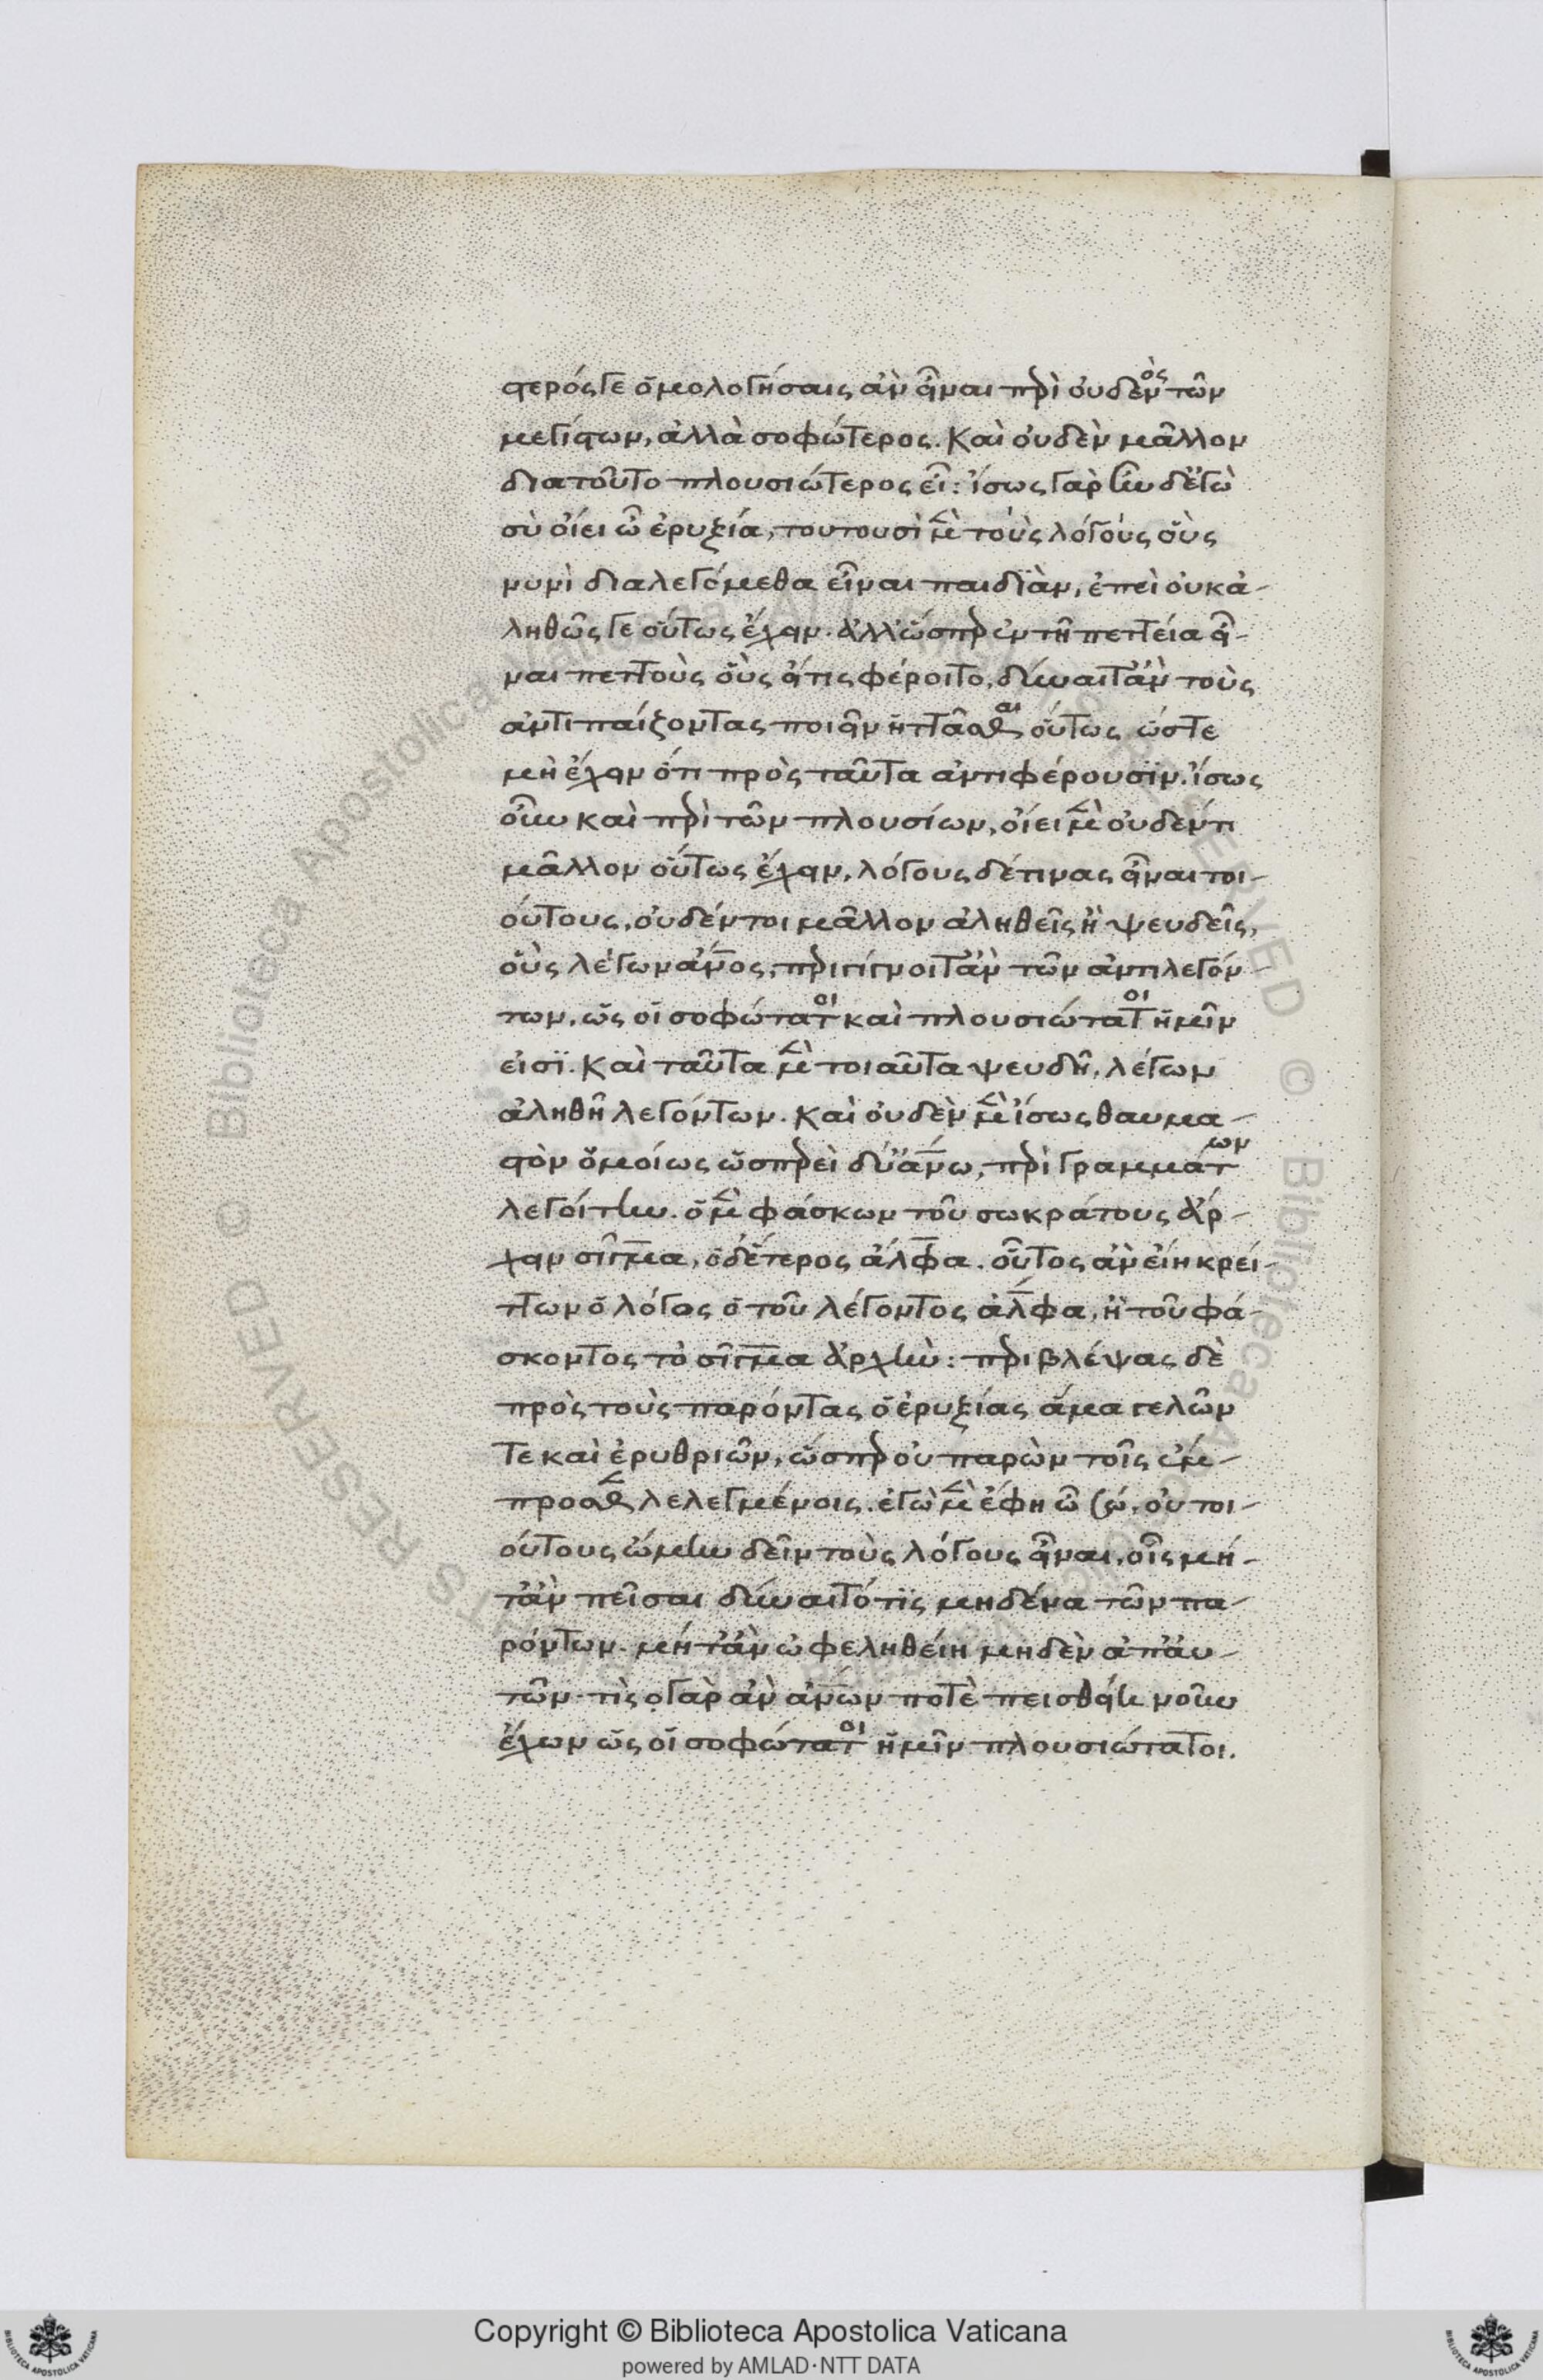 στερός γε ὁμολογήσαις ἂν εἶναι περὶ οὐδενὸς τῶν
μεγίστων, ἀλλὰ σοφώτερος. Καὶ οὐδὲν μᾶλλον
διατοῦτο πλουσιώτερος εἶ: ἴσως γὰρ ἦν δ' ἐγὼ
σὺ οἴει ὦ ἐρυξία, τουτουσὶ μὲν τοὺς λόγους οὓς
νυνὶ διαλεγόμεθα εἶναι παιδϊὰν, ἐπεὶ οὐκ ἀ-
ληθῶς γε οὕτως ἔχειν. ἀλλ' ὥσπερ ἐν τῇ πεττεία εἶ-
ναι πεττοὺς οὓς εἴ τις φέροιτο, δύναιτ' ἂν τοὺς
ἀντιπαίζοντας ποιεῖν ἡττᾶσθαι οὕτως ὥστε
μὴ ἔχειν ὅτι πρὸς ταῦτα ἀντιφέρουσϊν. ἴσως
οὖν καὶ περὶ τῶν πλουσίων, οἴει μὲν οὐδέν τι
μᾶλλον οὕτως ἔχειν, λόγους δέ τινας εἶναι τοι-
ούτους, οὐδέν τοι μᾶλλον ἀληθεῖς ἢ ψευδεῖς,
οὓς λέγων ἄνος, περιγίγνοιτ' ἂν τῶν ἀντιλεγόν-
των, ὡς οἱ σοφώτατοι καὶ πλουσιώτατοι ἡμῖν
εἰσϊ. Καὶ ταῦτα μὲν τοιαῦτα ψευδῆ, λέγων
ἀληθῆ λεγόντων. Καὶ οὐδὲν μὲν ἴσως θαυμα-
στὸν ὁμοίως ὥσπερ εἰ δύ' ἄνω, περὶ γραμμάτων
λεγοίτην. ὁ μὲν φάσκων τοῦ σωκράτους ἄρ-
χειν σῖγμα, ὁ δ' ἕτερος ἄλφα. οὗτος ἂν εἴη κρεί-
ττων ὁ λόγος ὁ τοῦ λέγοντος ἄλφα, ἢ τοῦ φά-
σκοντος τὸ σῖγμα ἄρχην: περιβλέψας δὲ
πρὸς τοὺς παρόντας ὁ ἐρυξίας ἅμα γελῶν
τε καὶ ἐρυθριῶν, ὥσπερ οὐ παρὼν τοῖς ἔμ-
προσθεν λελεγμένοις. ἐγὼ μὲν ἔφη ὦ σώ, οὐ τοι-
ούτους ᾤμην δεῖν τοὺς λόγους εἶναι, οἷς μή-
τ' ἂν πεῖσαι δύναιτό τϊς μηδένα τῶν πα-
ρόντων. μήτ' ἂν ὠφεληθείη μηδὲν ἀπ' αὐ-
τῶν. τίς γὰρ ἂν ἄνων ποτὲ πεισθείη νοῦν
ἔχων ὡς οἱ σοφώτατοι ἡμῖν πλουσιώτατοι.
© Biblioteca Apostolica Vaticana
Copyright © Biblioteca Apostolica Vaticana
powered by AMLAD·NTT DATA